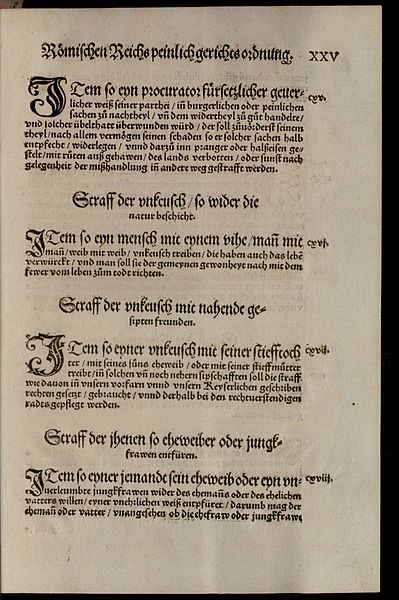 Römischen Reichs peinlich gerichts ordnung. XXV
ITem so eyn procurator fürsetzlicher geuer- cxv.
licher weiß seiner parthei / inn burgerlichen oder peinlichen
sachen zů nachtheyl / vnd dem widertheyl zů gůt handelte /
vnd solcher übelthatt überwunden würd / der soll zůuörderst seinem
theyl / nach allem vermögen seinen schaden so er solcher sachen halb
entpfecht / widerlegen / vnnd darzů inn pranger oder halßeisen ge-
stelt / mit růten auß gehawen / des lands verbotten / oder sunst nach
gelegenheit der mißhandlung inn andere weg gestrafft werden.
Straff der vnkeusch / so wider die
natur beschicht.
ITem so eyn mensch mit eynem vihe / mann mit cxvj.
mann / weib mit weib / vnkeusch treiben / die haben auch das leben
verwürckt / vnd man soll sie der gemeynen gewonheyt nach mit dem
fewer vom leben zům todt richten.
Straff der vnkeusch mit nahende ge-
sipten freunden.
ITem so eyner vnkeusch mit seiner stiefftoch cxvij.
ter / mit seines süns eheweib / oder mit seiner stieffmůtter
treibt / inn solchen vnd noch nehern sipschafften soll die straff
wie dauon inn vnsern vorfarn vnnd vnsern Keyserlichen geschriben
rechten gesetzt / gebraucht / vnnd derhalb bei den rechtuerstendigen
radts gepflegt werden.
Straff der jhenen so eheweiber oder jungk-
frawen entfüren.
ITem so eyner jemandt sein eheweib oder eyn vn- cxviij.
uerleumbte jungkfrawen wider des ehemanns oder des ehelichen
vatters willen / eyner vnehrlichen weiß entpfüret / darumb mag der
ehemann oder vatter / vnangesehen ob die ehefraw oder jungkfraw